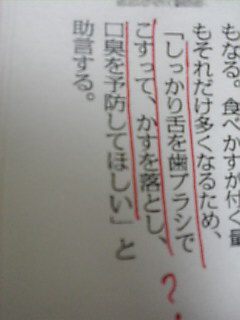 もなる。食べかすが付く量
もそれだけ多くなるため、
「しっかり舌を歯ブラシで
こすって、かすを落とし、
口臭を予防してほしい」と
助言する。
?